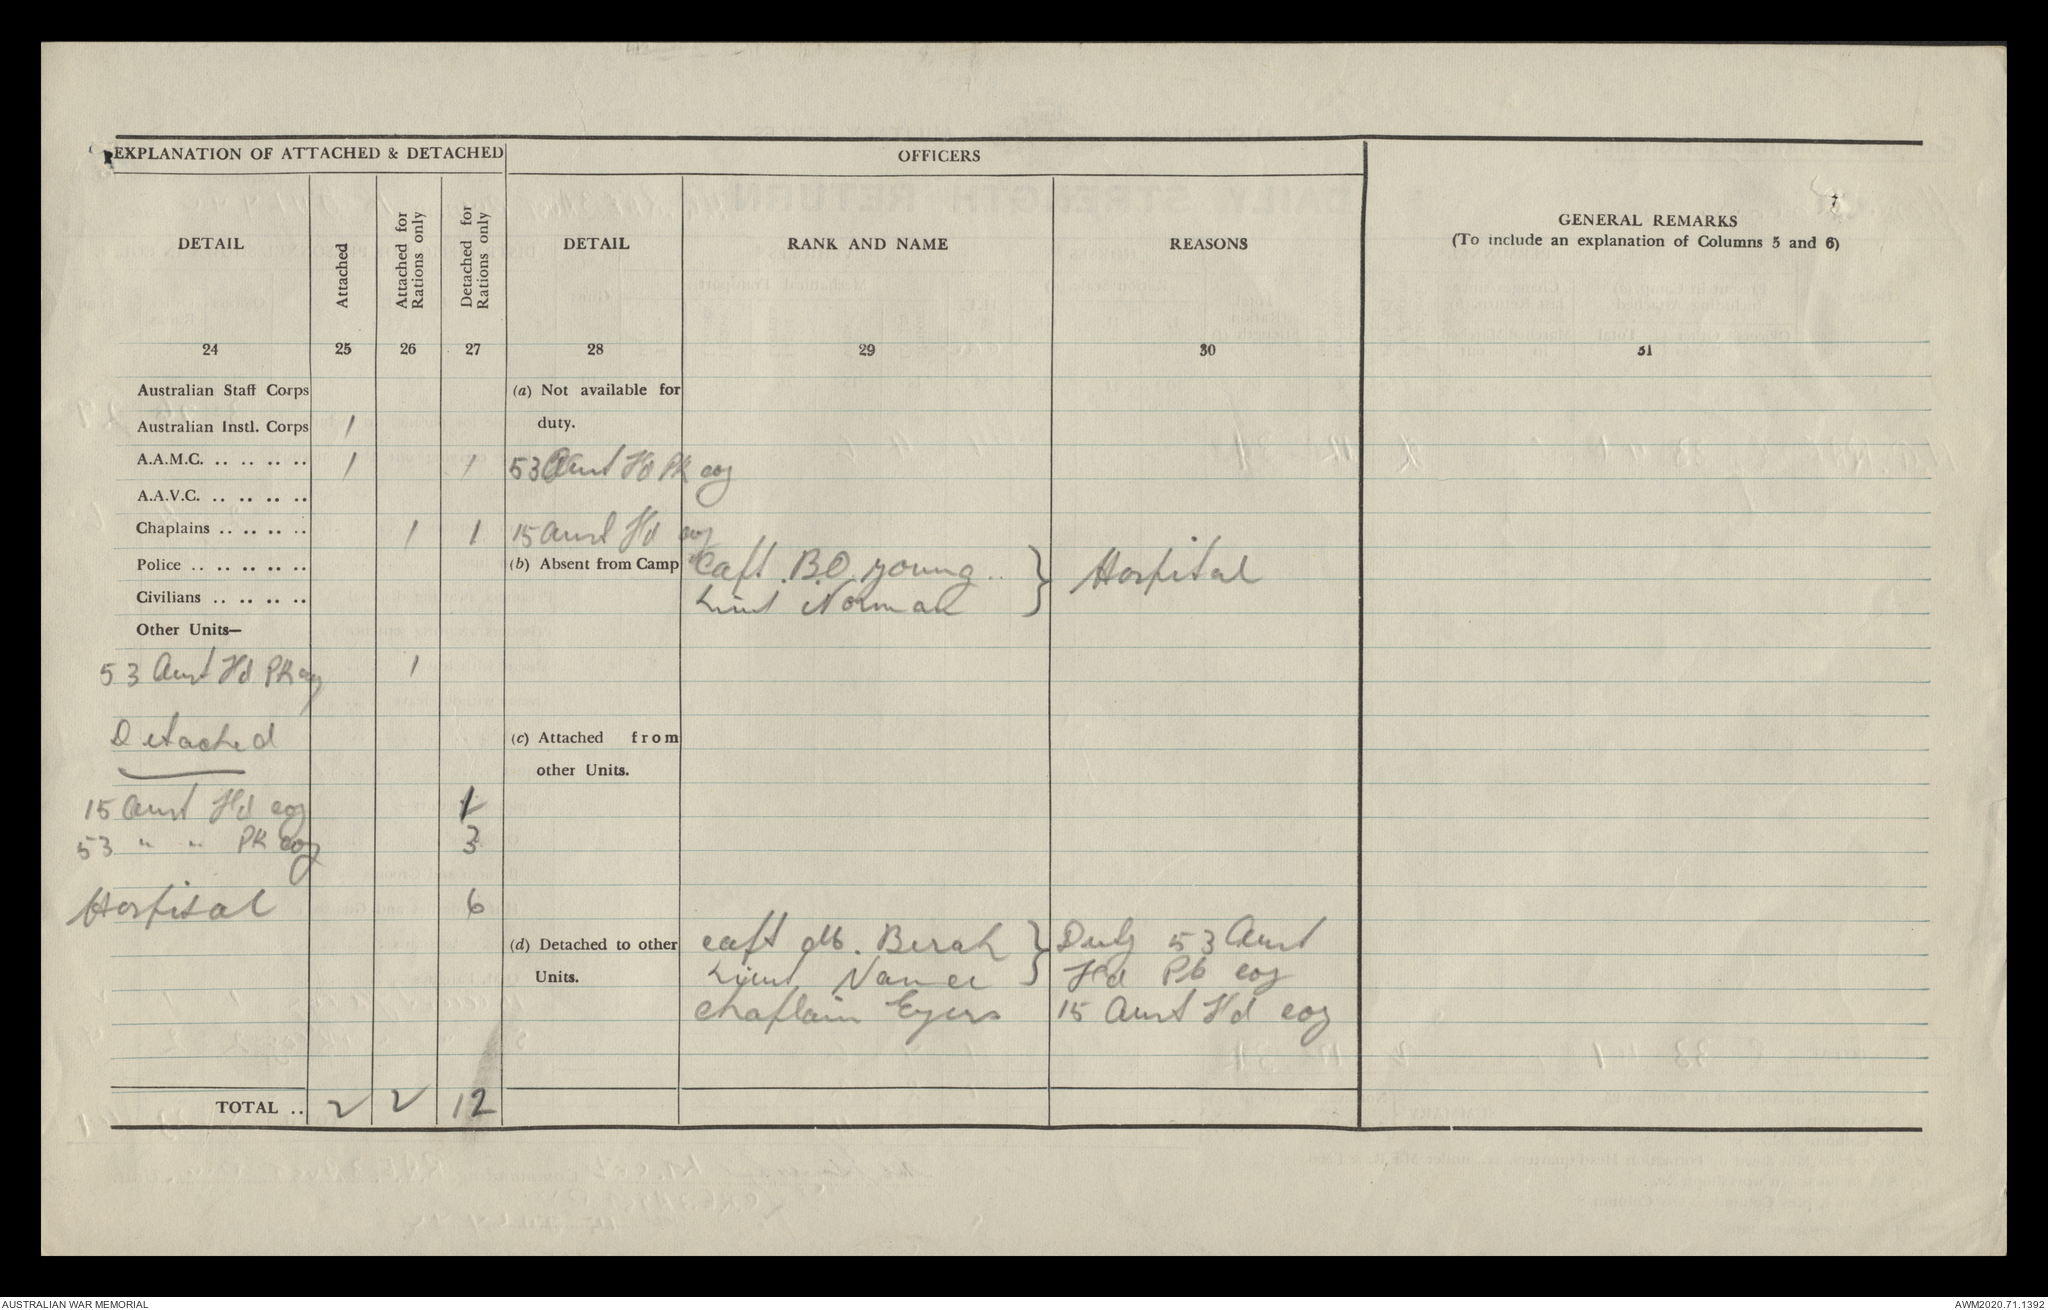 EXPLANATION OF ATTACHED & DETACHED
OFFICERS
GENERAL REMARKS
(To include an explanation of Columns 5 and 6)
DETAIL
Attached
Attached for Rations only
Detached for Rations only
DETAIL
RANK AND NAME
REASONS
24 25 26 27 28 29 30 31
Australian Staff Corps
(a) Not available for
duty.
Australian Instl. Corps 1
A.A.M.C. .. .. .. .. 1 1 53 Aust Fd Pk coy
A.A.V.C. .. .. .. ..
Chaplains .. .. .. .. 1 1 15 Aust Fd coy
Police .. .. .. .. ..
(b) Absent from Camp Capt. B.O. Young } Hospital
Civilians .. .. .. ..
Lieut Norman
Other Units—
53 Aust Fd Pk coy 1
Detached
(c) Attached from
other Units.
15 Aust Fd coy 1
53 " " Pk coy 3
Hospital 6
(d) Detached to other Capt Birah } Duty 53 Aust
Units. Lieut Fd Pk coy
Chaplain Eyers 15 Aust Fd coy
TOTAL .. 2 2 12
AUSTRALIAN WAR MEMORIAL
AWM2020.71.1392